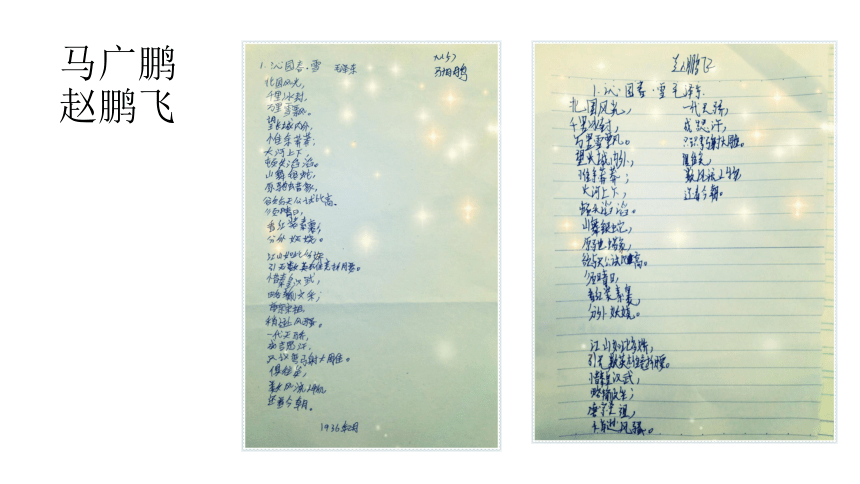 马广鹏
赵鹏飞
1.沁园春·雪 毛泽东
北国风光,
千里冰封,
万里雪飘。
望长城内外,
惟余莽莽;
大河上下,
顿失滔滔。
山舞银蛇,
原驰蜡象,
欲与天公试比高。
须晴日,
看红装素裹,
分外妖娆。
江山如此多娇,
引无数英雄竞折腰。
惜秦皇汉武,
略输文采;
唐宗宋祖,
稍逊风骚。
一代天骄,
成吉思汗,
大雕。
俱往矣,
数风流人物,
还看今朝。
1936年2月
赵鹏飞
1.沁园春·雪 毛泽东.
北国风光,
千里冰封,
万里雪飘。
望长城内外,
惟余莽莽;
大河上下,
顿失滔滔。
山舞银蛇,
原驰蜡象,
欲与天公试比高。
须晴日,
看红装素裹,
分外妖娆。
江山如此多娇,
引无数英雄竞折腰。
惜秦皇汉武,
略输文采;
唐宗宋祖,
稍逊风骚。
一代天骄,
成吉思汗,
只识弯弓射大雕。
俱往矣,
数风流人物
还看今朝。